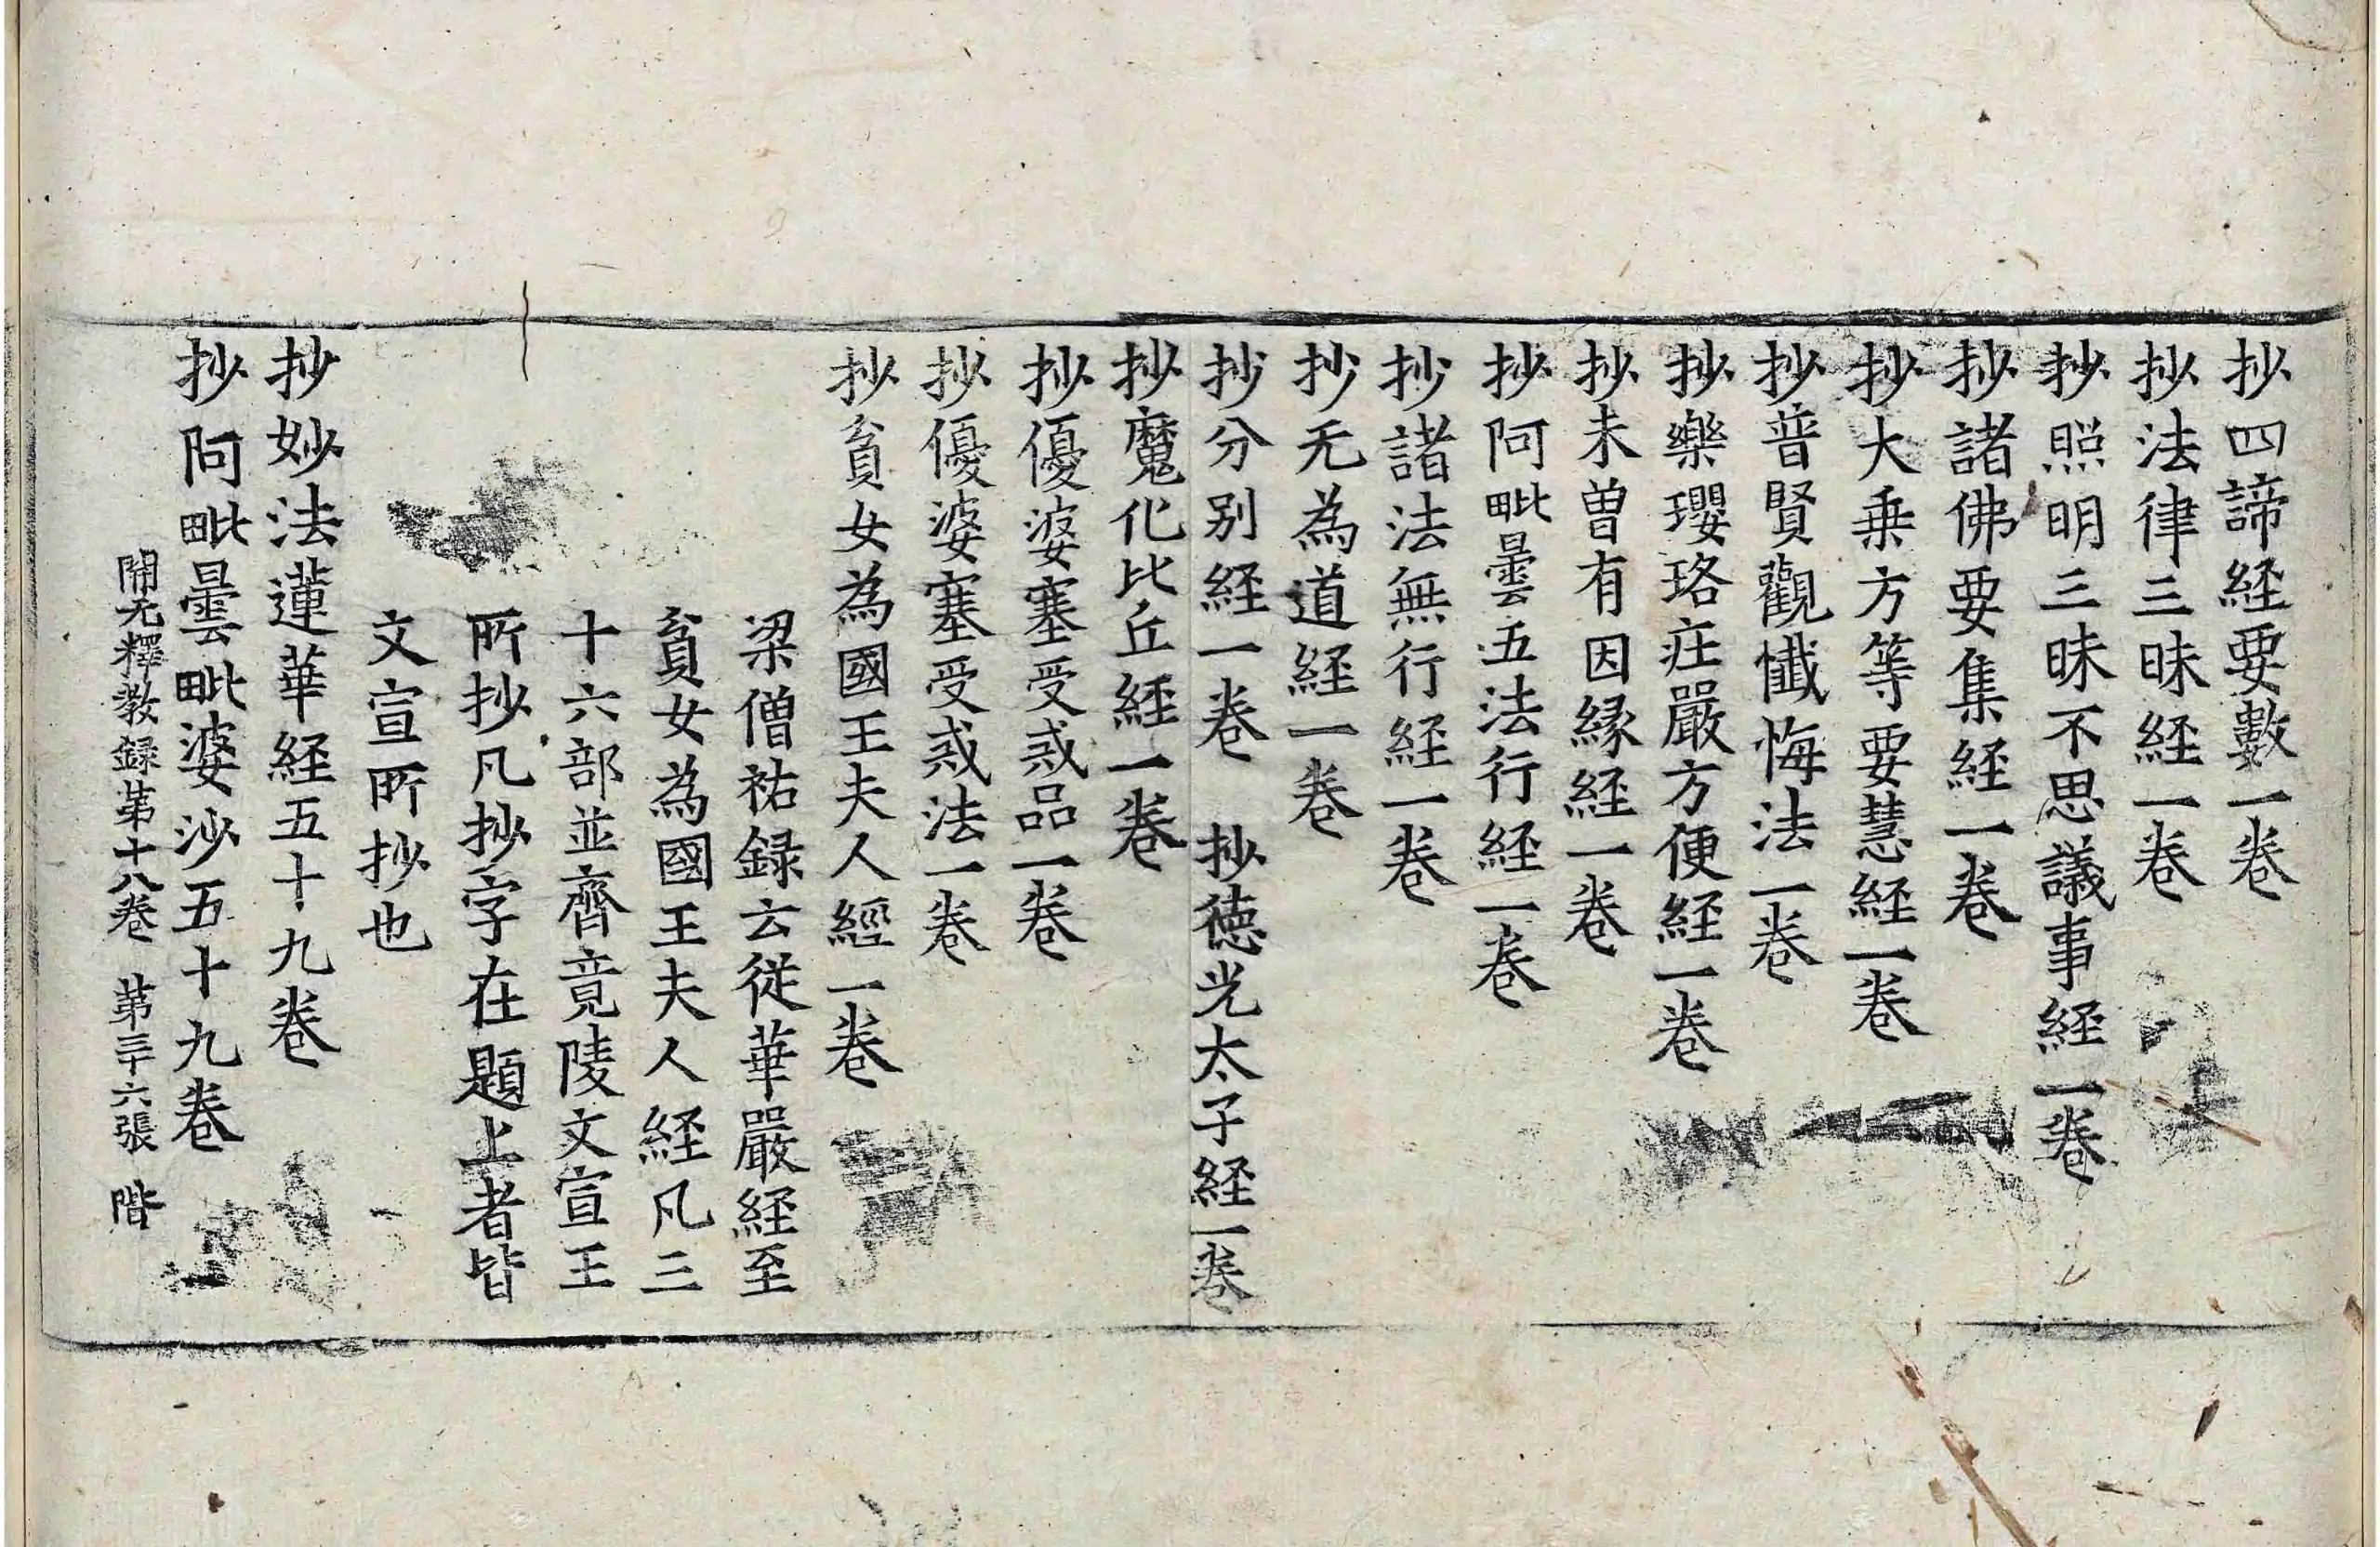 抄四諦経要數一卷
抄法律三昧経一卷
抄照明三昧不思議事経一卷
抄諸佛要集経一卷
抄大乗方等要慧経一卷
抄普賢觀懺悔法一卷
抄樂瓔珞莊嚴方便経一卷
抄未曽有因緣経一卷
抄阿毗曇五法行経一卷
抄諸法無行経一卷
抄无為道経一卷
抄分別経一卷 抄徳光太子経一卷
抄魔化比丘経一卷
抄優婆塞受戒品一卷
抄優婆塞受戒法一卷
抄貧女為國王夫人經一卷
梁僧祐録云從華嚴経至
貧女為國王夫人経凡三
十六部並齊竟陵文宣王
所抄凡抄字在題上者皆
文宣所抄也
抄妙法蓮華経五十九卷
抄阿毗曇毗婆沙五十九卷
開元釋教録第十八卷 第三十六張 階